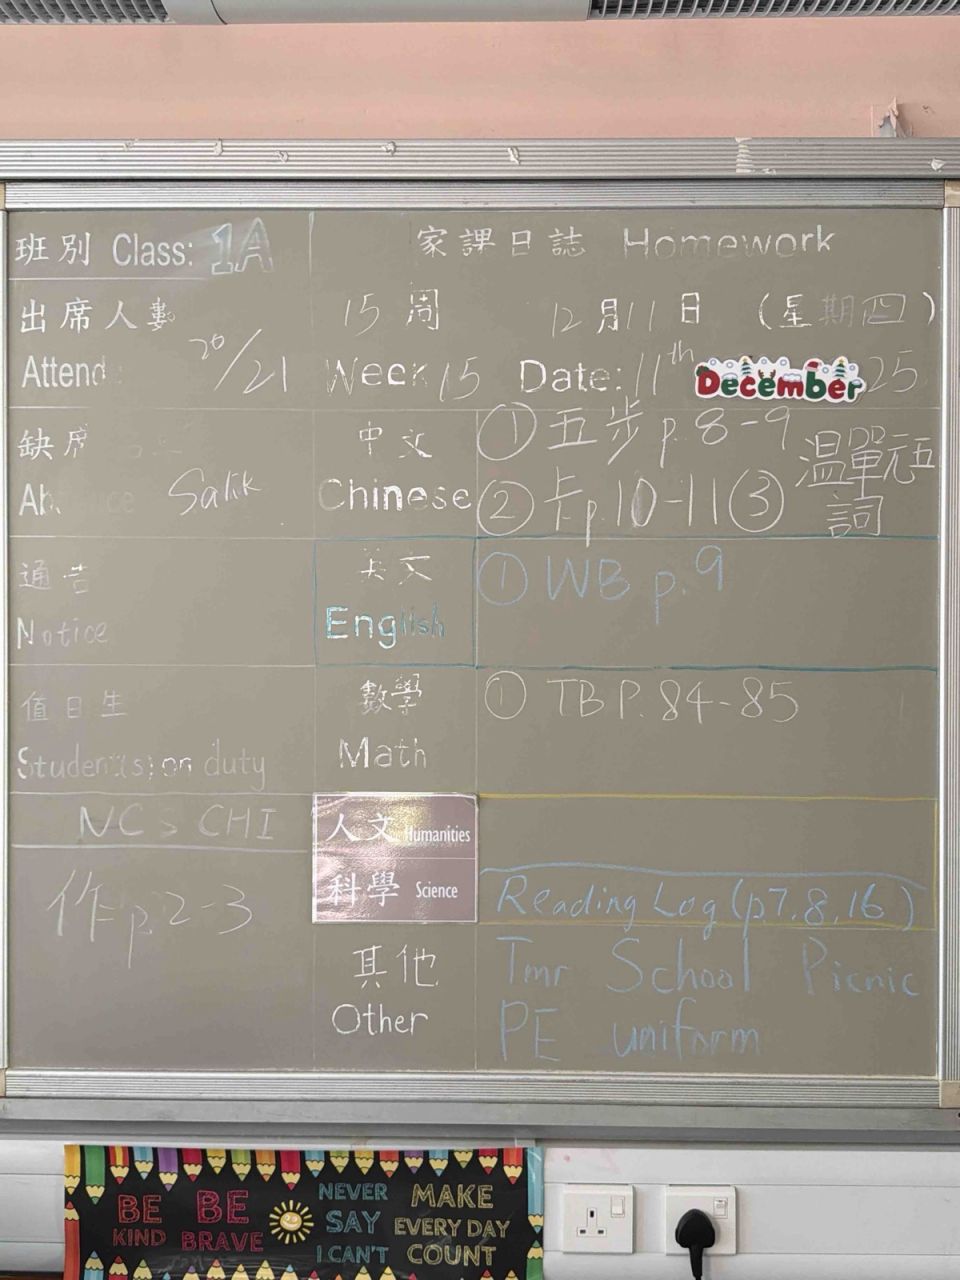 班別 Class: 1A
家課日誌 Homework
出席人數
15周 12月11日 (星期四)
Attend 20/21
Week 15 Date: 11th December 25
缺席
Salik
中文
Chinese
① 五步 p.8-9
② 卡 p.10-11 ③ 温單元五
詞
通告
Notice
英文
English
① WB p.9
值日生
Student(s) on duty
數學
Math
① TB P.84-85
NC > CHI
作 p.2-3
人文 Humanities
科學 Science
Reading Log (p7,8,16)
其他
Other
Tmr School Picnic
PE uniform
BE KIND
BE BRAVE
NEVER SAY I CAN'T
MAKE EVERY DAY COUNT